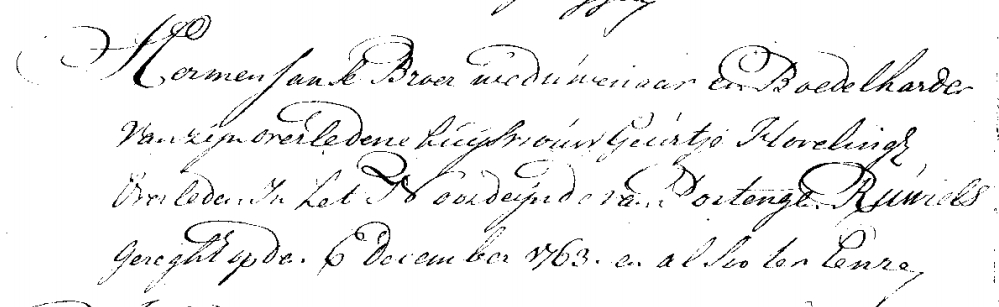 Hermen Jan de Broer weduwenaar en Boedelharder
van zijn overledene huijsvrouw Geurtje Hovelingh
Overleden In het Noordeijnde van Portenge Ruwiels
gereght op den 6 December 1763. en alsoo ter